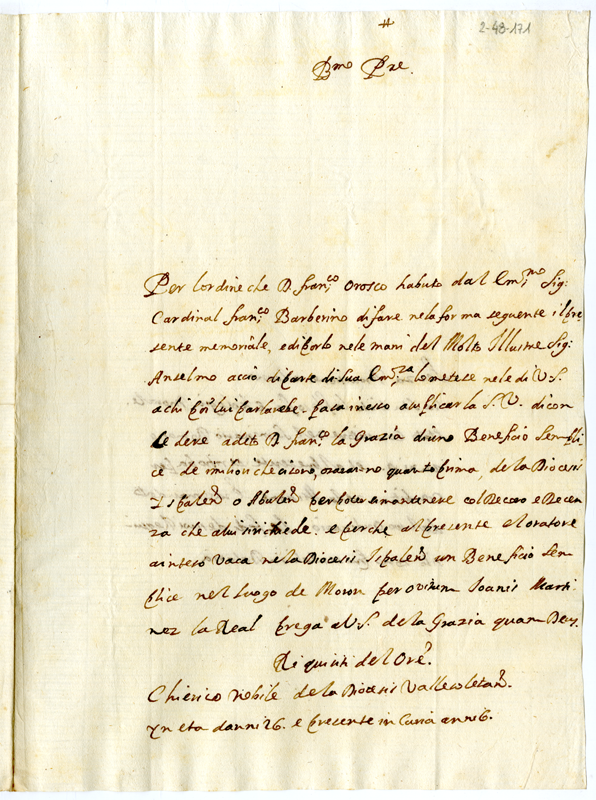 #
2-48-171
Bmo Pre.
Per lordine che D. franco Orosco habuto dal Emmo Sig:
Cardinal franco Barberino di fare nela forma seguente il pre
sente memoriale, e di porlo nele mani del Molto Illustre Sig:
Anselmo acciò di parte di Sua Emza lo metese nele di V.S.
a chi poi lui parlarebe. fa ca inesto asuplicar la S.V. di con
cedere a deto D. franco la Grazia di uno Beneficio Sempli
ce de imilion che quanto prima, de la Diocesis
Ispalen o Abulen per potersi mantenere col Decoro e Decen
za che a lui si richiede. e perche al presente el oratore
a inteso Vaca nela Diocesis Ispalen un Beneficio Sen
plice nel Luogo de Moron per ovitum Joanis Marti
nez la Real prega a V.S. de la Grazia quam Deus.
Riquisiti del Ore.
Chierico Nobile de la Diocesis Vallesoletan.
Yn eta danni 26. e presente in Curia anni 6.